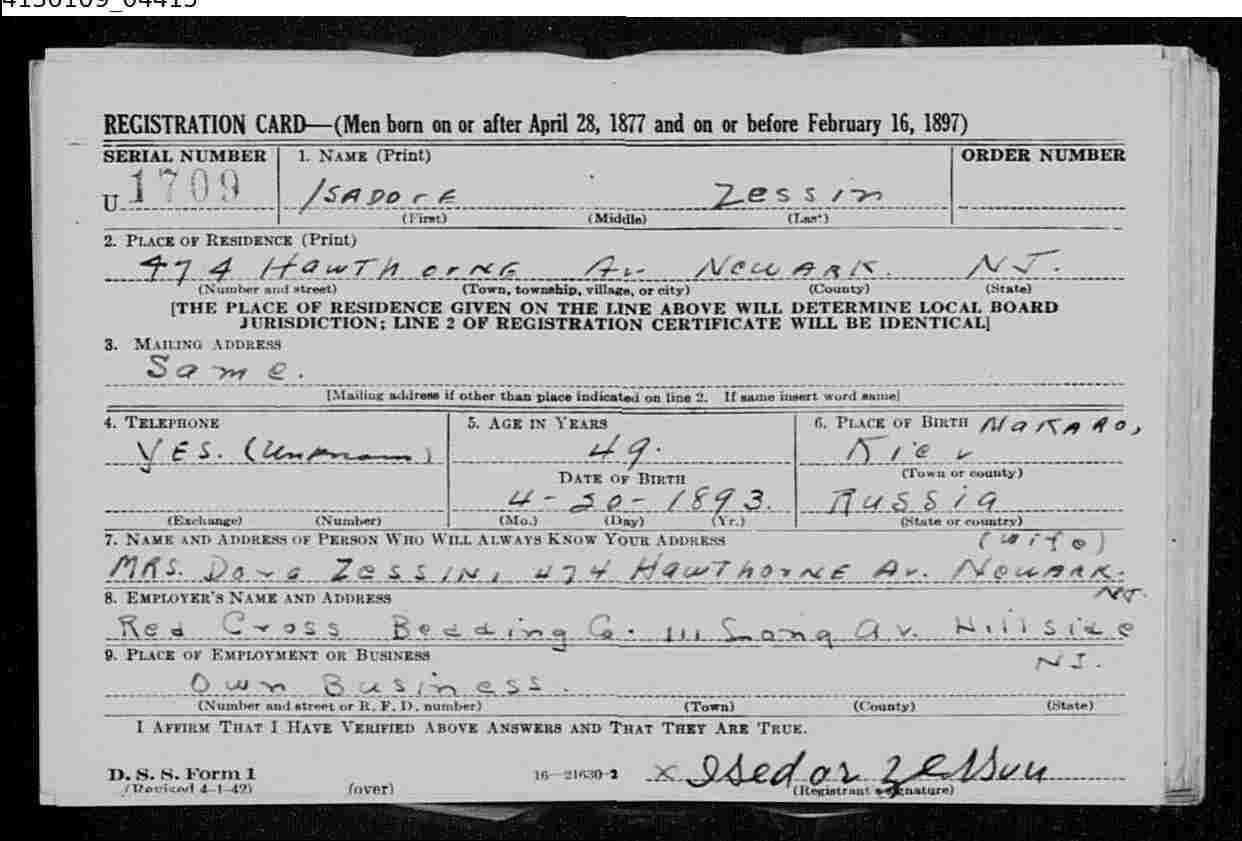 REGISTRATION CARD—(Men born on or after April 28, 1877 and on or before February 16, 1897)
SERIAL NUMBER 1. NAME (Print) ORDER NUMBER
U 1709 ISADORE Zessin
(First) (Middle) (Last)
2. PLACE OF RESIDENCE (Print)
474 HAWThORNE Av. NewARK. NJ.
(Number and street) (Town, township, village, or city) (County) (State)
[THE PLACE OF RESIDENCE GIVEN ON THE LINE ABOVE WILL DETERMINE LOCAL BOARD
JURISDICTION; LINE 2 OF REGISTRATION CERTIFICATE WILL BE IDENTICAL]
3. MAILING ADDRESS
Same.
[Mailing address if other than place indicated on line 2. If same insert word same]
4. TELEPHONE 5. AGE IN YEARS 6. PLACE OF BIRTH
YES. (Unknown) 49. Kiev
DATE OF BIRTH (Town or county)
4-30-1893. Russia
(Exchange) (Number) (Mo.) (Day) (Yr.) (State or country)
7. NAME AND ADDRESS OF PERSON WHO WILL ALWAYS KNOW YOUR ADDRESS (wife)
MRS. Dora Zessin, 474 HAWThORNE Av. NewARK.
NJ.
8. EMPLOYER'S NAME AND ADDRESS
Red Cross Bedding Co. 111 Long Av. Hillside
9. PLACE OF EMPLOYMENT OR BUSINESS NJ.
Own Business.
(Number and street or R. F. D. number) (Town) (County) (State)
I AFFIRM THAT I HAVE VERIFIED ABOVE ANSWERS AND THAT THEY ARE TRUE.
D. S. S. Form 1 16—21630-2 x Isedor Zesson
(Revised 4-1-42) (over) (Registrant signature)